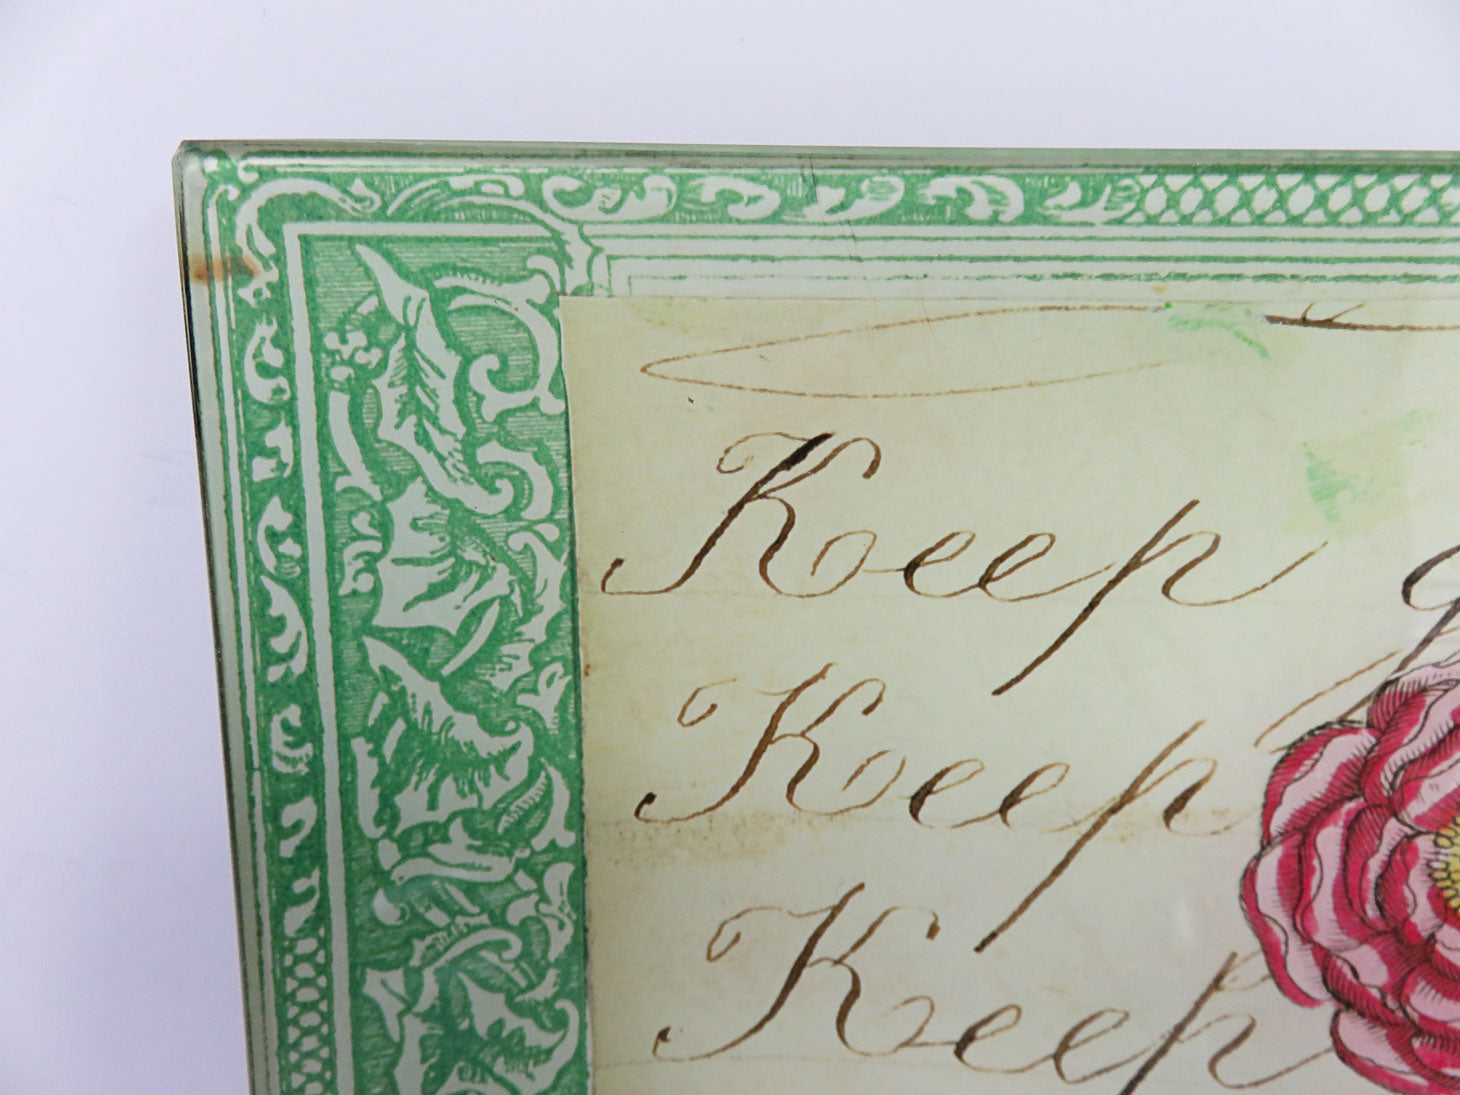 Keep
Keep
Keep